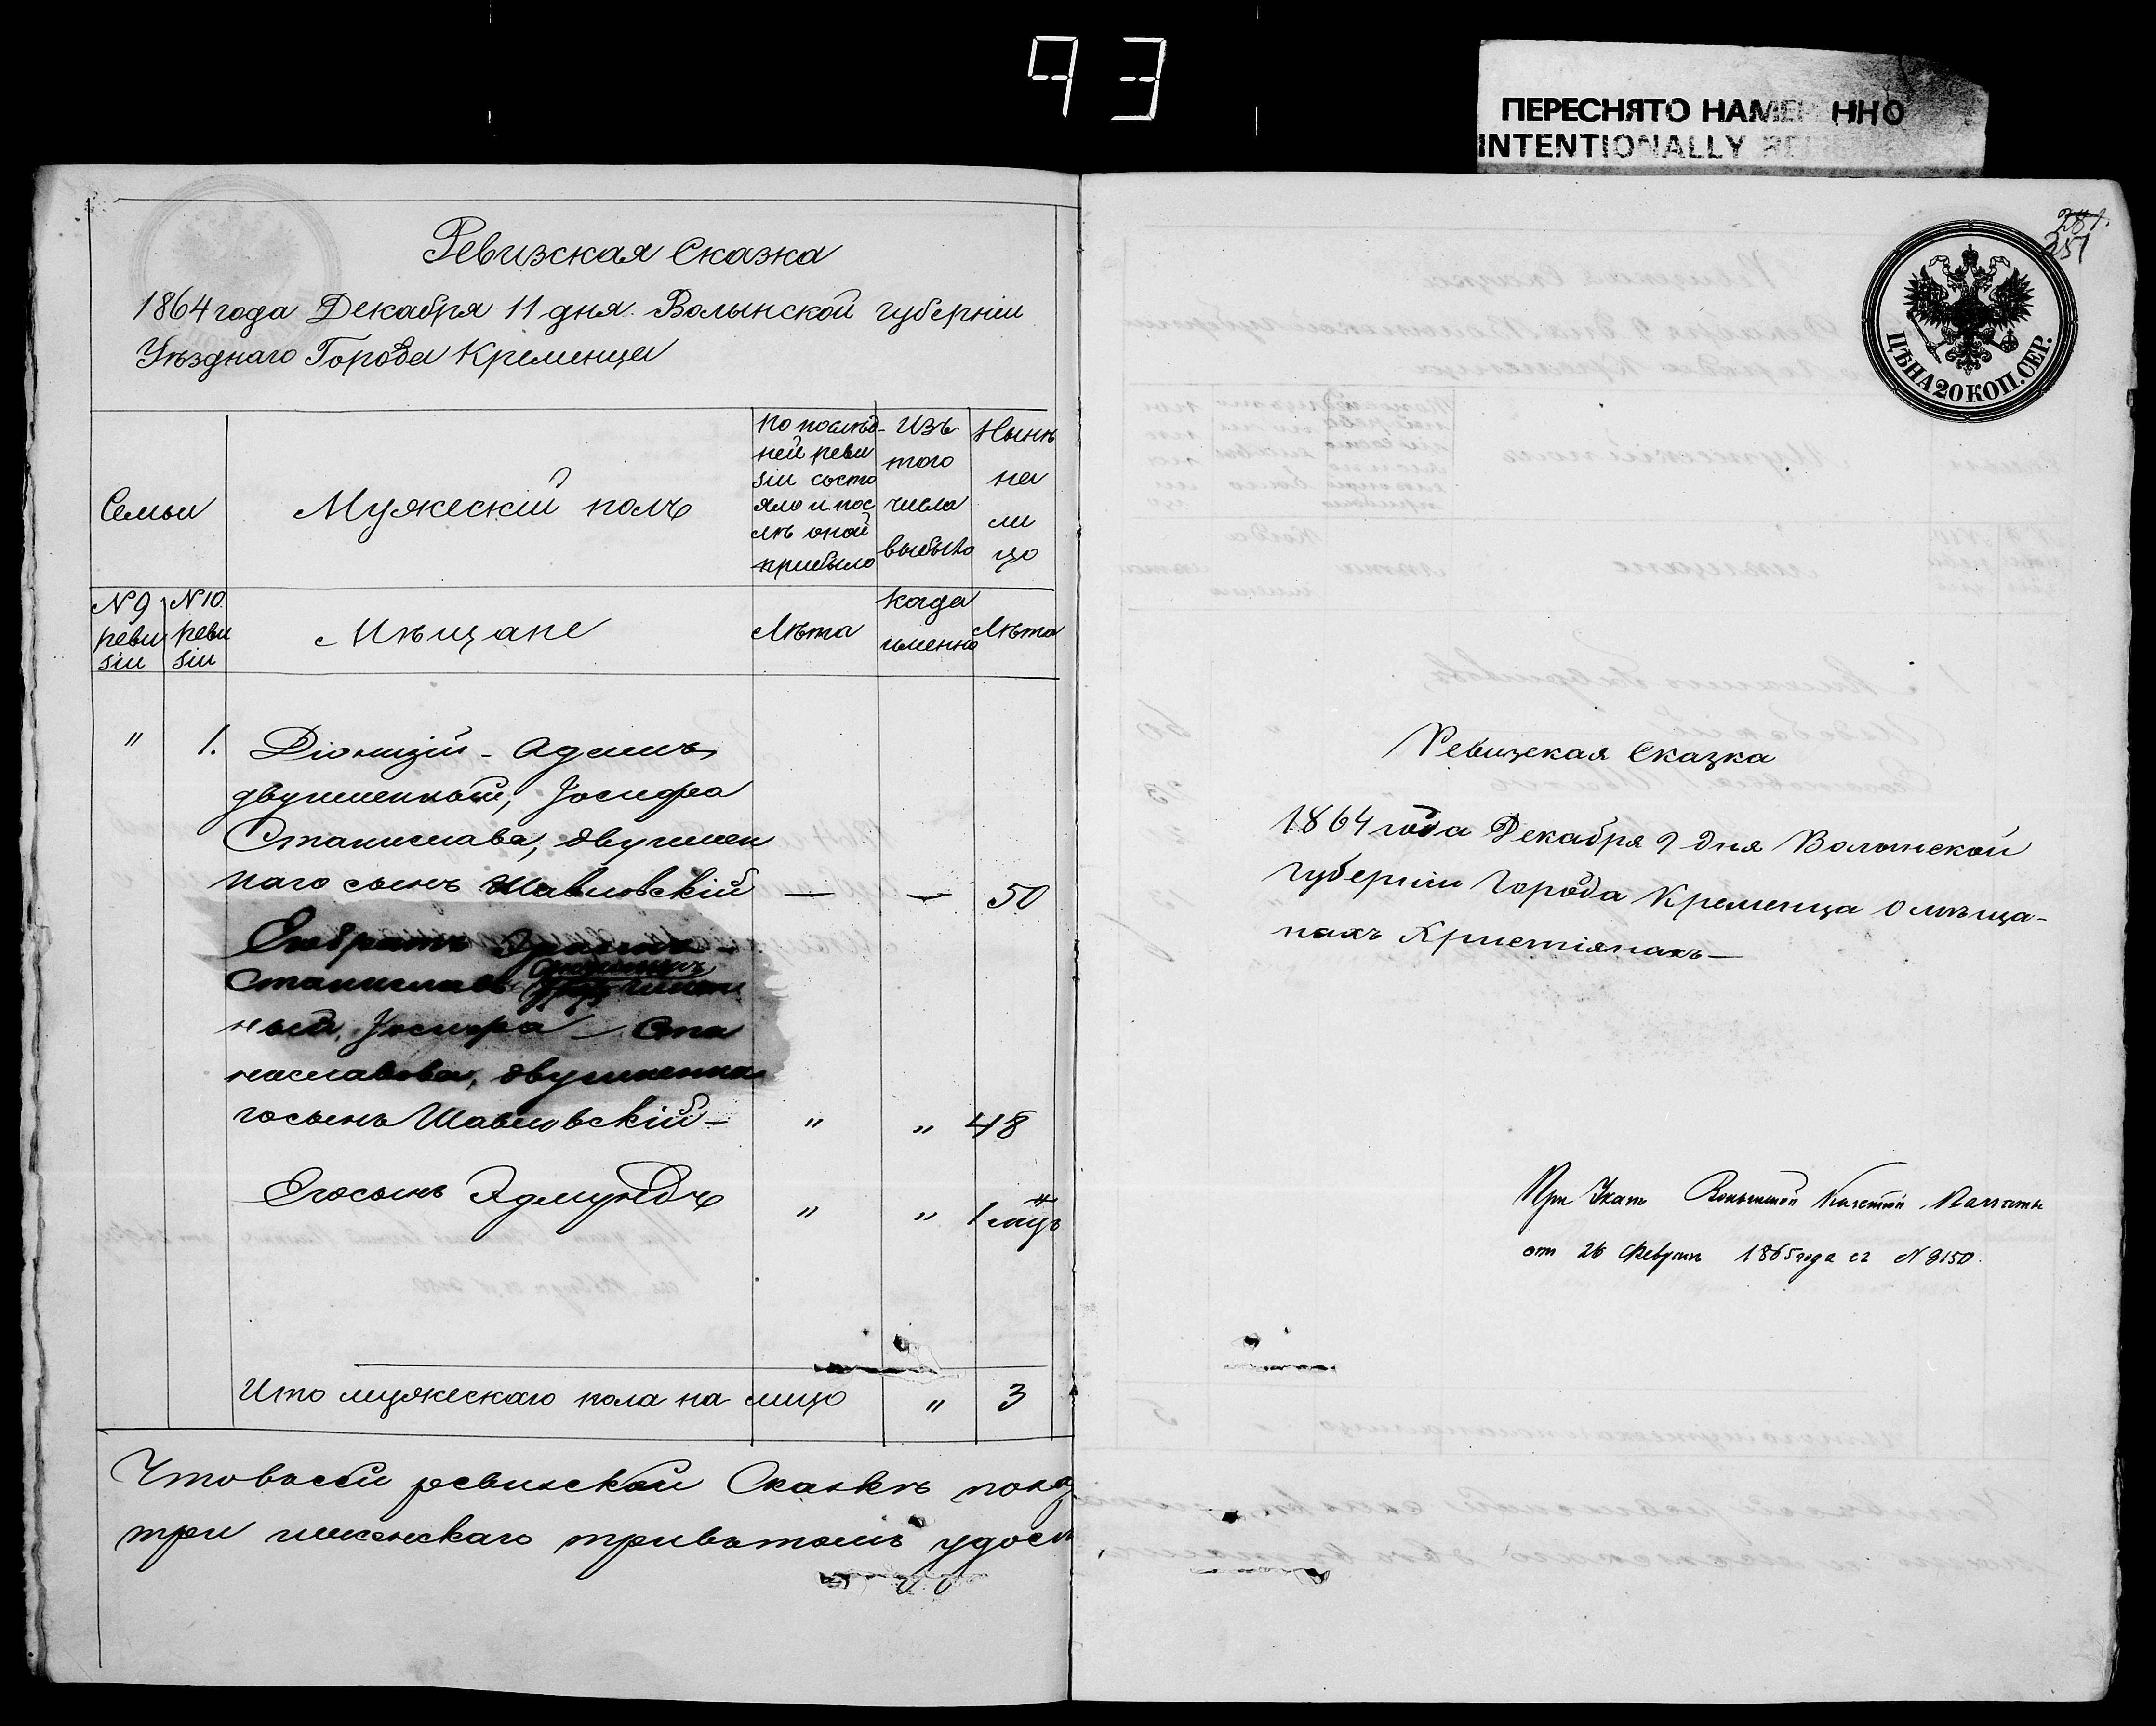 93
ПЕРЕСНЯТО НАМЕР ННО
INTENTIONALLY
Ревизская Сказка
1864 года Декабря 11 дня. Волынской губерніи
Уѣзднаго Города Кременца
Семьи
Мужескій полъ
По послѣд-
ней реви
зіи состо
яло и пос
лѣ оной
прибыло
Изъ
того
числа
выбыло
Нынѣ
на
ли
цо
N 9
реви
зіи
N 10.
реви
зіи
Мѣщане
Лѣта
Када
именно
Лѣта
" 1. Діонизій - Адамъ
двуименный, Іосифа
Станислава, двуимен
наго сынъ Шавловскій — — 50
Его братъ
Станиславъ
ный, Іосифа — Ста
ниславова, двуименна
го сынъ Шавловскій — " " 48
Его сынъ Эдмундъ " " 1 мцъ
Ито мужескаго пола на лицо " 3
Что въ сей ревизской Сказкѣ показ
три и женскаго три въ томъ удос
381.
351
ЦѢНА 20 КОП. СЕР.
Ревизская Сказка
1864 года Декабря 9 дня Волынской
Губерніи Города Кременца о мѣща-
нахъ Христіянахъ —
При Указѣ Волынской Казенной Палаты
от 26 Февраля 1865 года съ N 3150.